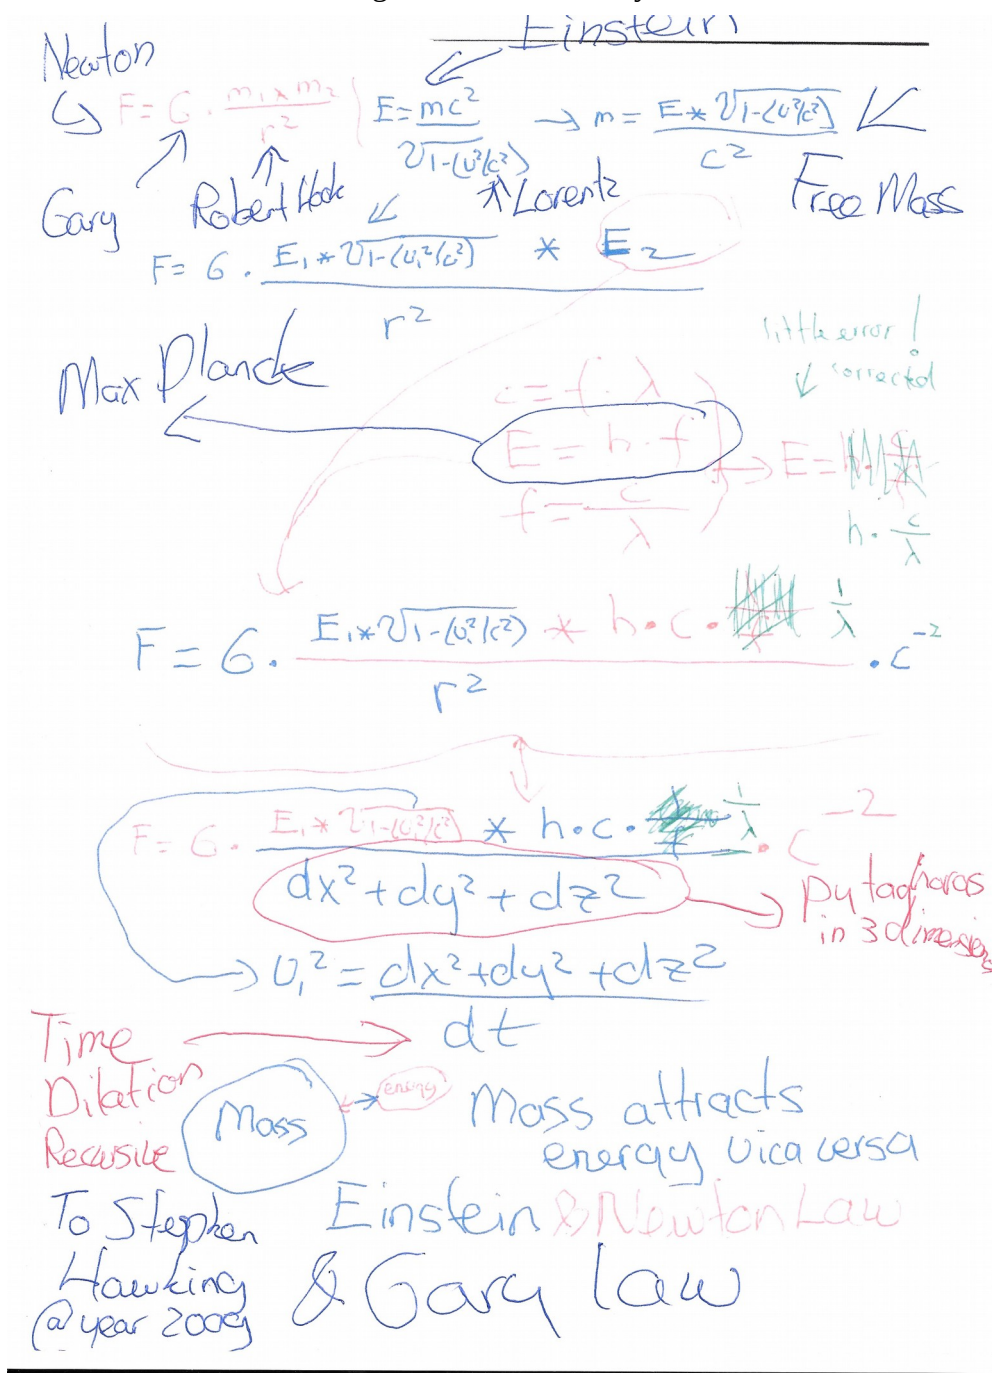 Einstein
Newton
F = G · m₁ × m₂ / r²
E = mc² / √1-(v²/c²) → m = E * √1-(v²/c²) / c²
Gary
Robert Hook
Lorentz
Free Mass
F = G · E₁ * √1-(v₁²/c²) * E₂ / r²
Max Planck
little error!
corrected
c = f · λ
E = h · f
→ E =
f = c / λ
h · c / λ
F = G · E₁ * √1-(v₁²/c²) * h · c · 1/λ / r² · c⁻²
F = G · E₁ * √1-(v₁²/c²) * h · c · 1/λ · c⁻²
dx² + dy² + dz²
pytaghoras
in 3 dimensions
→ v₁² = dx² + dy² + dz² / dt
Time
Dilation
Recusive
Mass
energy
Mass attracts
energy vica versa
To Stephen
Hawking
@ year 2009
Einstein & Newton Law
& Gary law